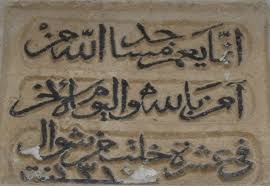 انما يعمر مساجد الله من
امن بالله واليوم الاخر
في عشرة خلت من شوال
سنة